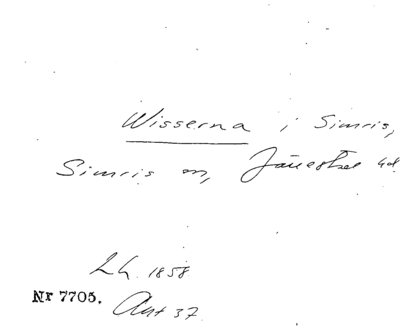 Wisserna i Simris,
Simris sn, Järrestad hd
Lh. 1858
Nr 7705. Avt 37